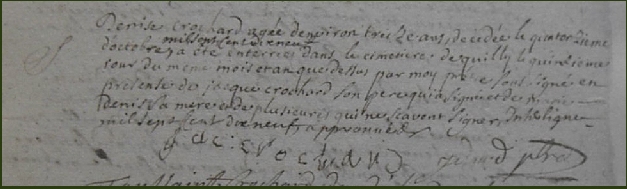 Denise Crochard agée denviron treize ans, decedée le quatorzieme
mil sept cent dix neuf
doctobre, a été enterrée dans le cimetiere desquilly le quinzieme
jour du meme mois et an que dessus par moy soussigné en
presence de jacque crochard son pere qui a signé et de
Denis sa mere et de plusieurs qui ne scavent signer, Interligne
mil sept cent dix neuf approuvée
jac: crochard ptre
Toussaint Crochard